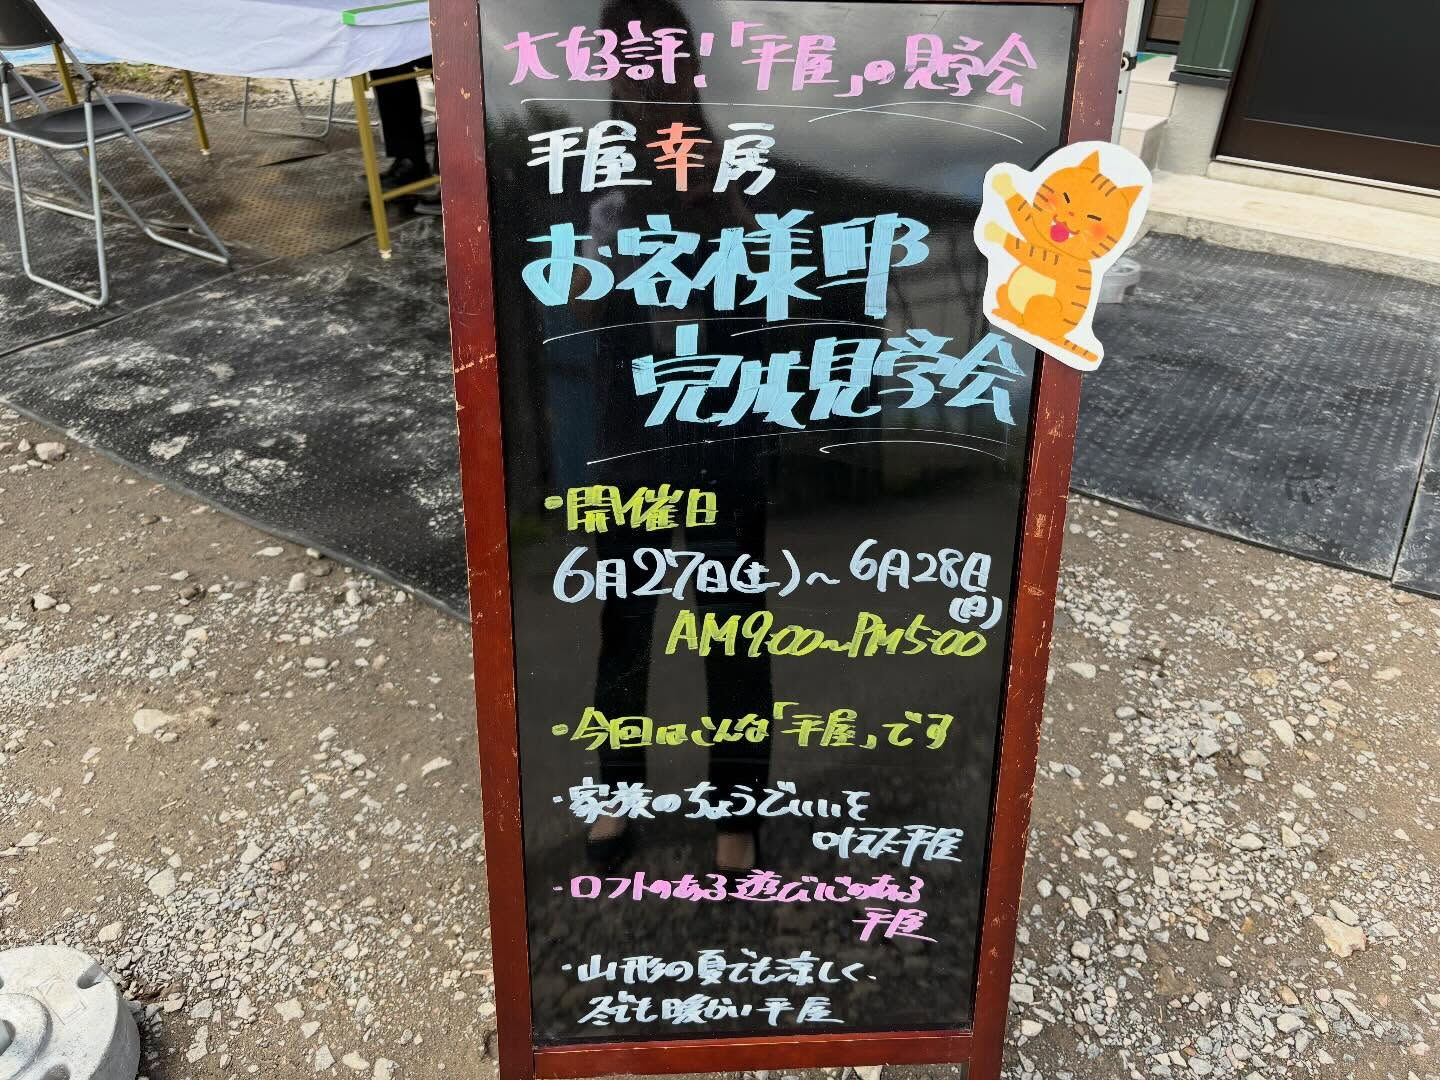 大好評!「平屋」の見学会
平屋幸房
お客様邸
完成見学会
・開催日
6月27日(土)～6月28日
(日)
AM9:00～PM5:00
・今回はこんな「平屋」です
・家族のちょうどいいを
叶えた平屋
・ロフトのある遊び心のある
平屋
・山形の夏でも涼しく、
冬でも暖かい平屋